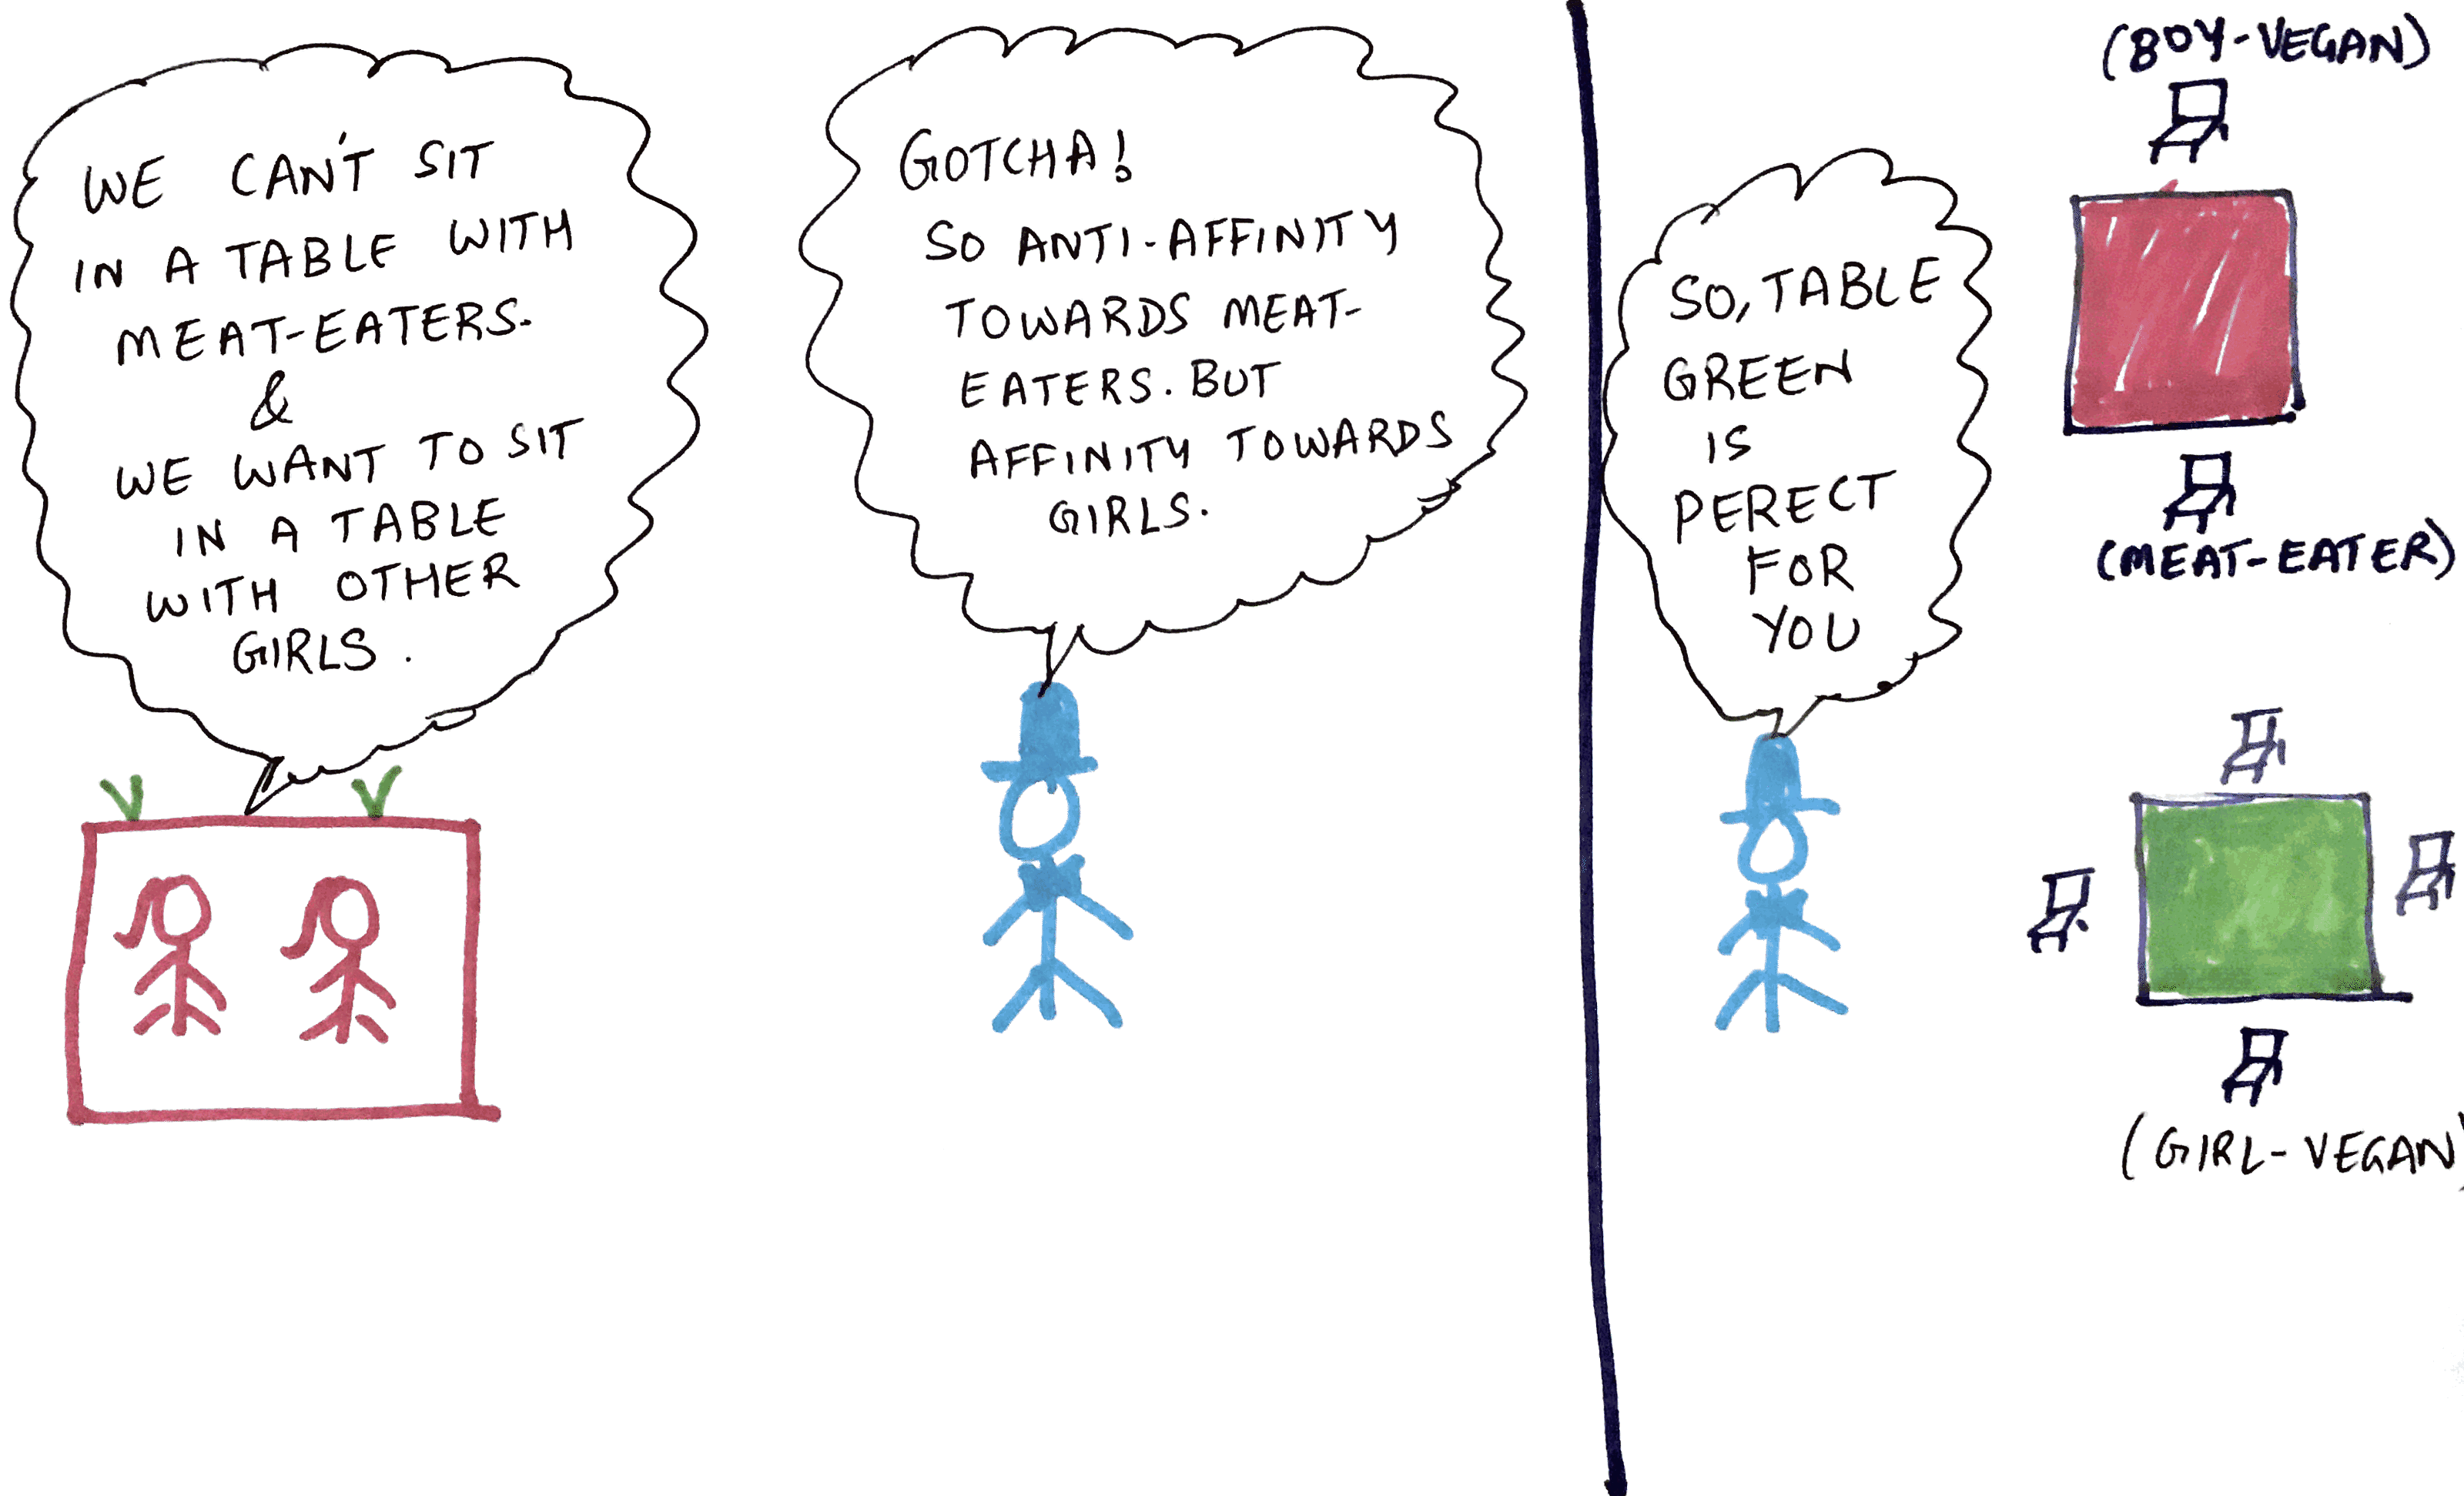 WE CAN'T SIT
IN A TABLE WITH
MEAT-EATERS.
&
WE WANT TO SIT
IN A TABLE
WITH OTHER
GIRLS.
GOTCHA!
SO ANTI-AFFINITY
TOWARDS MEAT-
EATERS. BUT
AFFINITY TOWARDS
GIRLS.
SO, TABLE
GREEN
IS
PERECT
FOR
YOU
(BOY-VEGAN)
(MEAT-EATER)
(GIRL-VEGAN)
V V